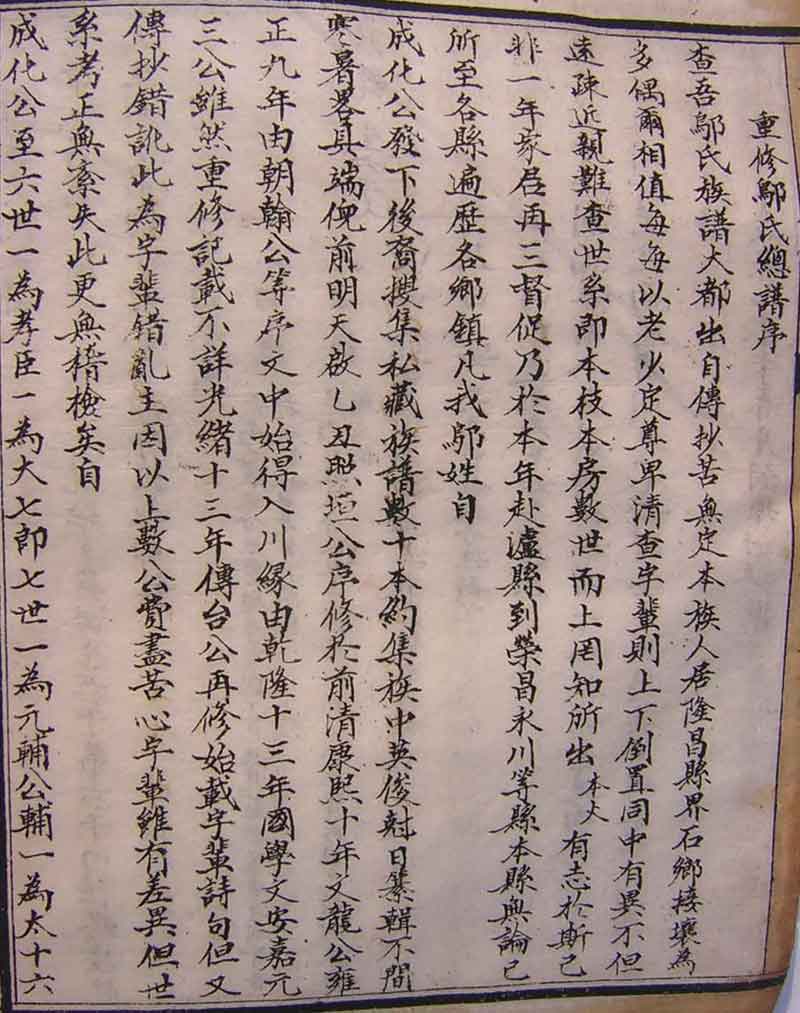 重修鄔氏總譜序
查吾鄔氏族譜大都出自傳抄苦無定本族人居隆昌縣界石鄉接壤為
多偶爾相值每每以老少定尊卑清查字輩則上下倒置同中有異不但
遠疎近親難查世系即本枝本房數世而上罔知所出本大有志於斯已
非一年家居再三督促乃於本年赴瀘縣到榮昌永川等縣本縣無論已
所至各縣遍歷各鄉鎮凡我鄔姓自
成化公發下後裔搜集私藏族譜數十本約集族中英俊尅日纂輯不間
寒暑畧具端倪前明天啟乙丑熙垣公序修於前清康熙十年文龍公雍
正九年由朝翰公等序文中始得入川緣由乾隆十三年國學文安嘉元
三公雖然重修記載不詳光緒十三年傳台公再修始載字輩詩句但又
傳抄錯訛此為字輩錯亂主因以上數公費盡苦心字輩雖有差異但世
系考正無紊失此更無稽檢矣自
成化公至六世一為孝臣一為大七郎七世一為元輔公輔一為太十六